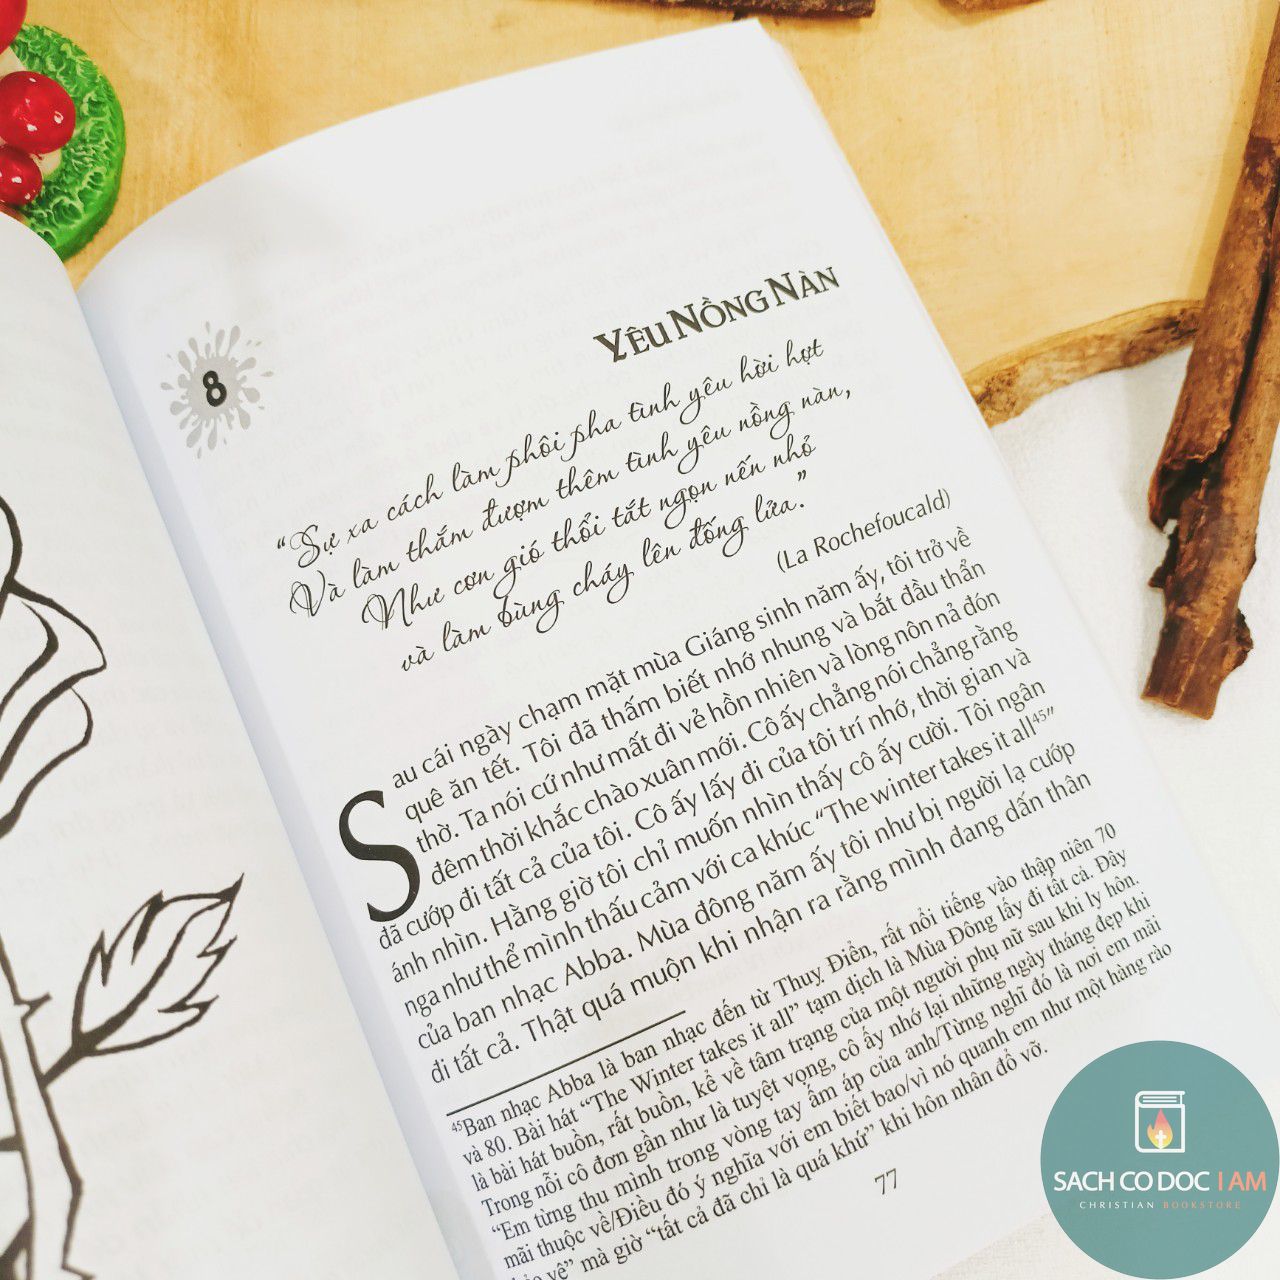 8
YÊU NỒNG NÀN
“Sự xa cách làm phôi pha tình yêu hời hợt
Và làm thắm đượm thêm tình yêu nồng nàn,
Như cơn gió thổi tắt ngọn nến nhỏ
và làm bùng cháy lên đống lửa.”
(La Rochefoucald)
Sau cái ngày chạm mặt mùa Giáng sinh năm ấy, tôi trở về
quê ăn tết. Tôi đã thấm biết nhớ nhung và bắt đầu thẩn
thờ. Ta nói cứ như mất đi vẻ hồn nhiên và lòng nôn nả đón
đêm thời khắc chào xuân mới. Cô ấy chẳng nói chẳng rằng
đã cướp đi tất cả của tôi. Cô ấy lấy đi của tôi trí nhớ, thời gian và
ánh nhìn. Hằng giờ tôi chỉ muốn nhìn thấy cô ấy cười. Tôi ngân
nga như thể mình thấu cảm với ca khúc “The winter takes it all⁴⁵”
của ban nhạc Abba. Mùa đông năm ấy tôi như bị người lạ cướp
đi tất cả. Thật quá muộn khi nhận ra rằng mình đang dấn thân
⁴⁵Ban nhạc Abba là ban nhạc đến từ Thuỵ Điển, rất nổi tiếng vào thập niên 70
và 80. Bài hát “The Winter takes it all” tạm dịch là Mùa Đông lấy đi tất cả. Đây
là bài hát buồn, rất buồn, kể về tâm trạng của một người phụ nữ sau khi ly hôn.
Trong nỗi cô đơn gần như là tuyệt vọng, cô ấy nhớ lại những ngày tháng đẹp khi
“Em từng thu mình trong vòng tay ấm áp của anh/Từng nghĩ đó là nơi em mãi
mãi thuộc về/Điều đó ý nghĩa với em biết bao/vì nó quanh em như một hàng rào
vệ” mà giờ “tất cả đã chỉ là quá khứ” khi hôn nhân đổ vỡ.
77
SACH CO DOC I AM
CHRISTIAN BOOKSTORE